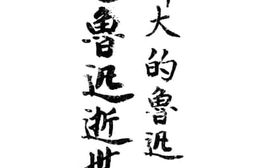 大的魯迅
魯迅逝世